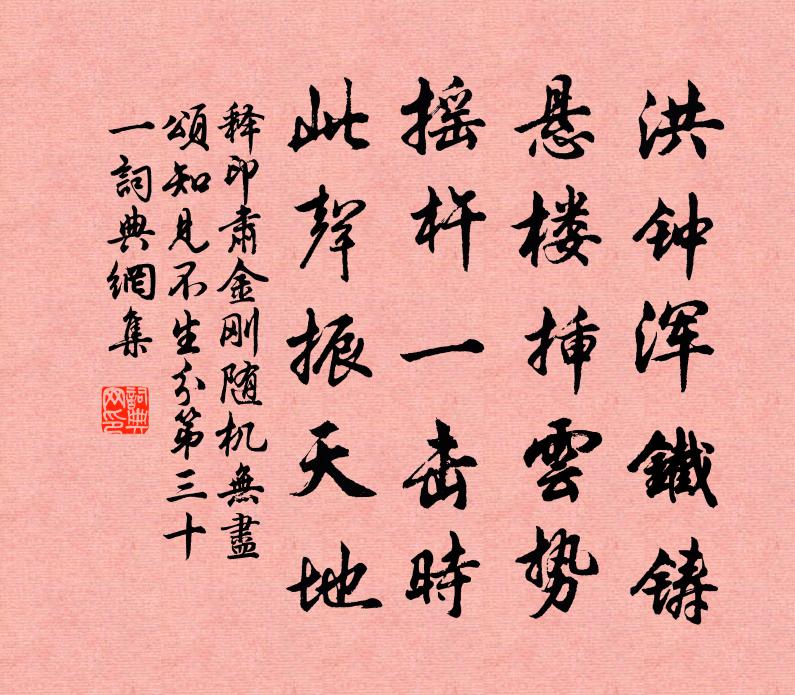 洪钟浑鐵铸
悬楼揷雲势
摇杵一击時
此聲振天地
释印肃金刚随机無盡
頌知见不生分第三十
一詞典網集
詞典
网印